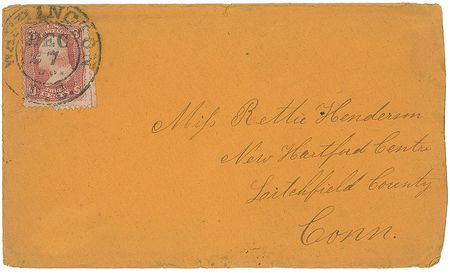 TORRINGTON
DEC
27
Miss Rettie Henderson
New Hartford Centre
Litchfield County
Conn.